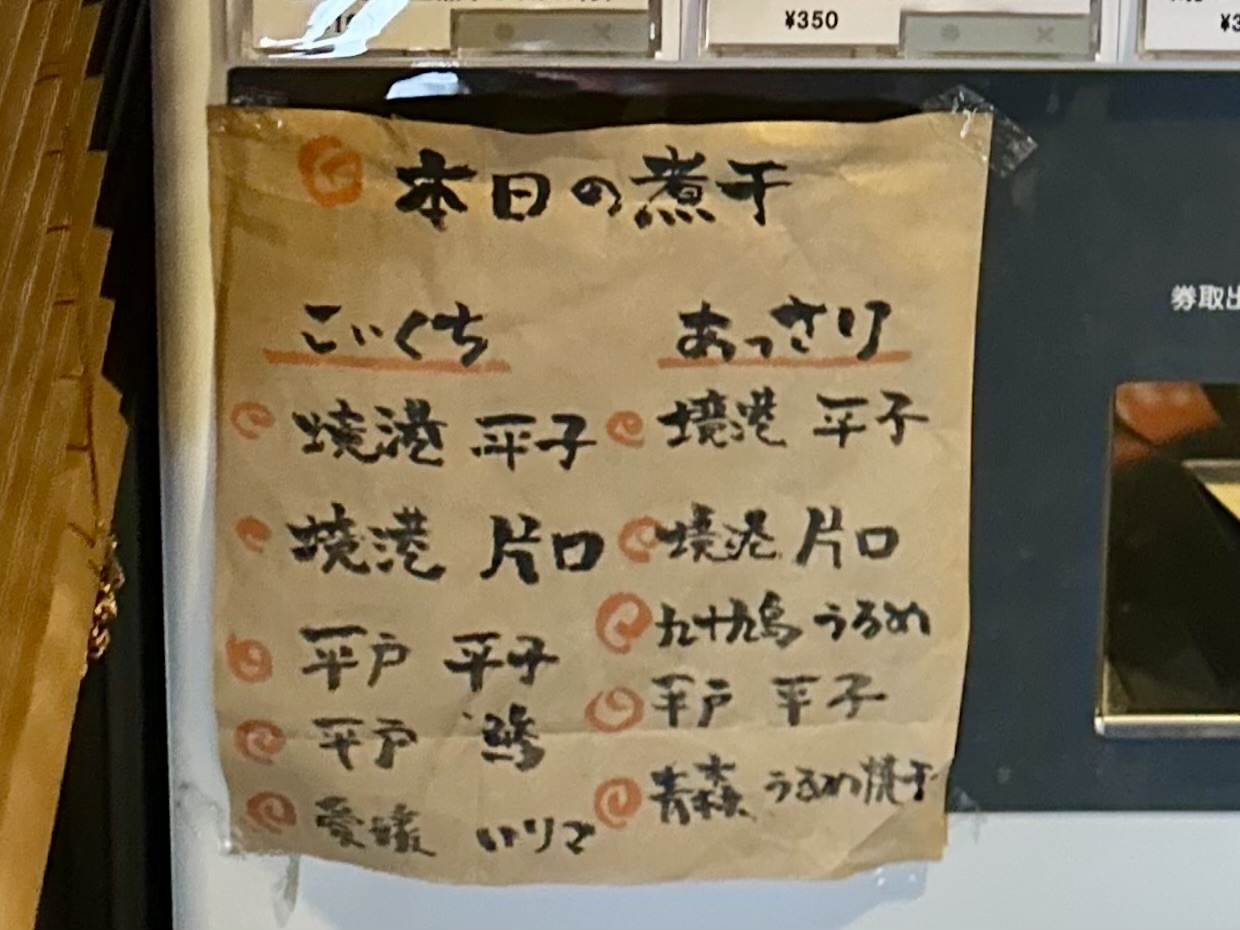 ¥350
本日の煮干
こいくち
境港 平子
境港 片口
平戸 平子
平戸 鯵
愛媛 いりこ
あっさり
境港 平子
境港 片口
九十九島 うるめ
平戸 平子
青森 うるめ焼干
券取出